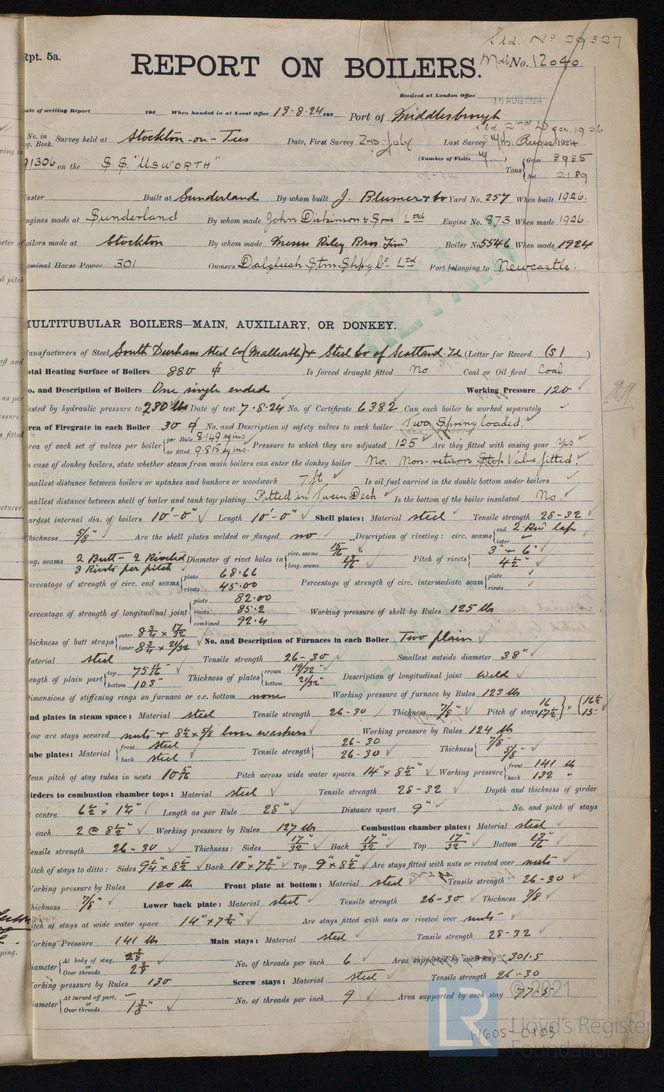 Rpt. 5a.
Sld. No 29327
REPORT ON BOILERS.
Mdb No. 12040
Received at London Office 16 AUG 1924
Date of writing Report 192 When handed in at Local Office 13.8.24 192 Port of Middlesbrough
No. in Survey held at Stockton-on-Tees Date, First Survey 2nd July Last Survey Augus 1924
Reg. Book.
91306 on the S.S. "USWORTH" (Number of Visits ) Tons Gross 3985
Net 2189
Master Built at Sunderland By whom built J. Blumer & Co Yard No. 257 When built 1926.
Engines made at Sunderland By whom made John Dickinson & Sons Ltd Engine No. 873 When made 1926.
Boilers made at Stockton By whom made Messrs Riley Bros Lim Boiler No. 5546 When made 1924
Nominal Horse Power 301 Owners Dalgliesh Stm Shpg Co Ltd Port belonging to Newcastle.
MULTITUBULAR BOILERS—MAIN, AUXILIARY, OR DONKEY.
Manufacturers of Steel South Durham Steel Co (Malleable) & Steel Co of Scotland Ld (Letter for Record (S) )
Total Heating Surface of Boilers 880 Is forced draught fitted No Coal or Oil fired Coal
No. and Description of Boilers One single ended Working Pressure 120
Tested by hydraulic pressure to 230 lbs Date of test 7.8.24 No. of Certificate 6382 Can each boiler be worked separately
Area of Firegrate in each Boiler 30 No. and Description of safety valves to each boiler Two Spring loaded.
Area of each set of valves per boiler per Rule 8.149 sq ins as fitted 9.818 sq ins. Pressure to which they are adjusted 125 Are they fitted with easing gear Yes
In case of donkey boilers, state whether steam from main boilers can enter the donkey boiler No. Non-return Stop Valve fitted.
Smallest distance between boilers or uptakes and bunkers or woodwork 7 ft Is oil fuel carried in the double bottom under boilers
Smallest distance between shell of boiler and tank top plating Fitted in Tween Deck Is the bottom of the boiler insulated No
Largest internal dia. of boilers 10'-0" Length 10'-0" Shell plates: Material steel Tensile strength 28-32
Thickness Are the shell plates welded or flanged no Description of riveting: circ. seams end 2 Riv lap
inter.
long. seams 2 Butt - 2 Riveted 3 Rivets per pitch Diameter of rivet holes in circ. seams 15/16 long. seams 13/16 Pitch of rivets 3" + 6" 4½"
Percentage of strength of circ. end seams plate 68.66 rivets 45.00 Percentage of strength of circ. intermediate seam plate rivets
Percentage of strength of longitudinal joint plate 82.00 rivets 85.2 combined 92.4 Working pressure of shell by Rules 125 lbs
Thickness of butt straps outer 8¾ x 17/32 inner 8¾ x 21/32 No. and Description of Furnaces in each Boiler Two plain
Material steel Tensile strength 26-30 Smallest outside diameter 38"
Length of plain part top bottom Thickness of plates crown 19/32" bottom 21/32" Description of longitudinal joint Weld
Dimensions of stiffening rings on furnace or c.c. bottom none Working pressure of furnace by Rules 123 lbs
End plates in steam space: Material steel Tensile strength 26-30 Thickness 7/8" Pitch of stays 16 17½ x 16½ 15
How are stays secured nuts & 8½ x 9/8 loose washers Working pressure by Rules 124 lbs
Tube plates: Material front steel back steel Tensile strength 26-30 26-30 Thickness 7/8" 5/8"
Mean pitch of stay tubes in nests Pitch across wide water spaces 14" x 8½" Working pressure front 141 lbs back 132 "
Girders to combustion chamber tops: Material steel Tensile strength 28-32 Depth and thickness of girder
centre 6½" x 1¼" Length as per Rule 28" Distance apart 9" No. and pitch of stays
each 2 @ 8½" Working pressure by Rules 127 lbs Combustion chamber plates: Material steel
Tensile strength 26-30 Thickness: Sides 17/32" Back 17/32" Top 17/32" Bottom
Pitch of stays to ditto: Sides 9¼" x 8½" Back 10" x 7¾" Top 9" x 8½" Are stays fitted with nuts or riveted over nuts
Working pressure by Rules 120 lbs Front plate at bottom: Material steel Tensile strength 26-30
Thickness 7/8" Lower back plate: Material steel Tensile strength 26-30 Thickness 7/8
Pitch of stays at wide water space 14" x 7¾" Are stays fitted with nuts or riveted over nuts
Working Pressure 141 lbs Main stays: Material steel Tensile strength 28-32
Diameter At body of stay, or Over threads No. of threads per inch 6 Area supported by each stay 301.5
Working pressure by Rules 130 Screw stays: Material steel Tensile strength 26-30
Diameter At turned off part, or Over threads 1⅜" No. of threads per inch 9 Area supported by each stay 77.5
© 2021
LR
Lloyd's Register
Foundation
W605-0103